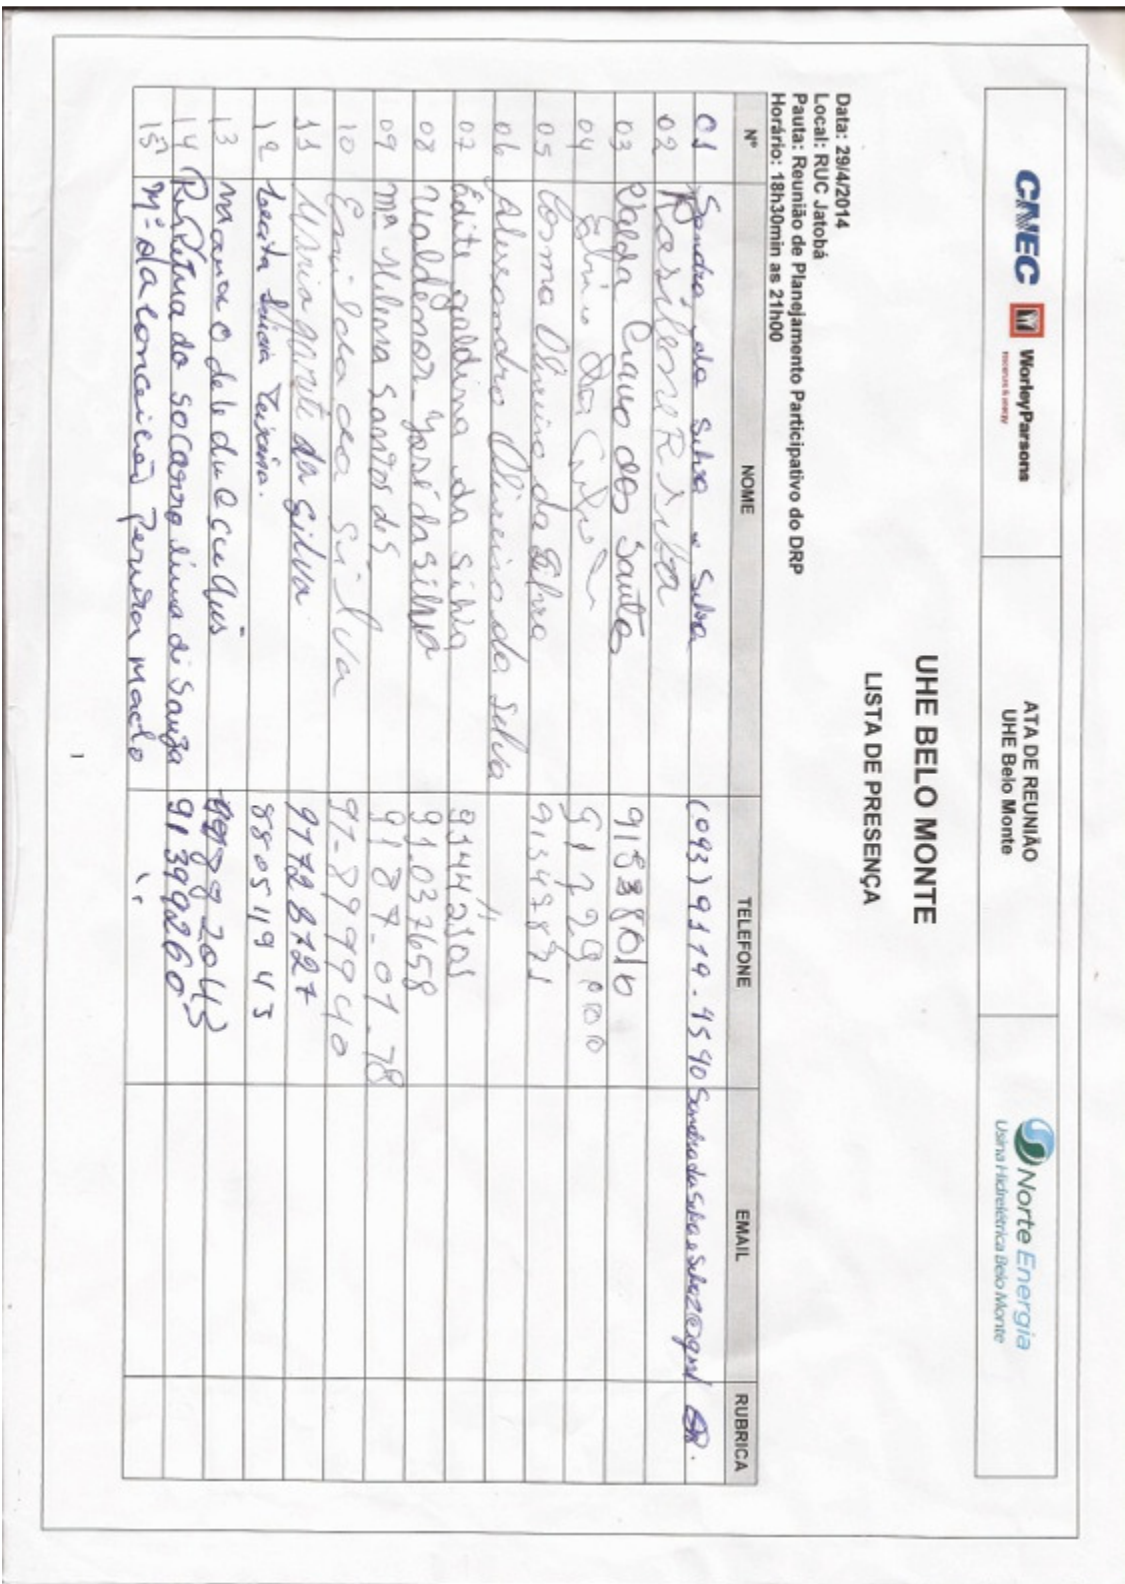 CNEC WorleyParsons
resources & energy
ATA DE REUNIÃO
UHE Belo Monte
Norte Energia
Usina Hidrelétrica Belo Monte
UHE BELO MONTE
LISTA DE PRESENÇA
Data: 29/4/2014
Local: RUC Jatobá
Pauta: Reunião de Planejamento Participativo do DRP
Horário: 18h30min as 21h00
Nº NOME TELEFONE EMAIL RUBRICA
01 Sandra da Silva e Silva (093) 9119-4590
02 Rosilene R Silva
03 Valda Cravo dos Santos
04
05 Cosmo Oliveira da Silva 91349871
06 Alessandro Oliveira da Silva
07 Edite galdina da Silva 91442101
08 Valdemar José da Silva 91037658
09 Mª Helena Santos de S 9187-01-78
10 Ermilda da Silva 91-899940
11 Maria da Silva 91728727
12 Lucia Teixeira. 88051943
13
14 do socorro lima di Souza 91399260
15 Mª da Conceição Pereira Macedo
1